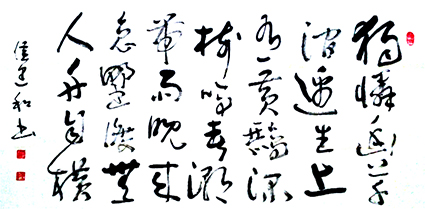 獨憐幽草
澗邊生上
有黃鸝深
樹鳴春潮
帶雨晚來
急野渡無
人舟自橫
和書